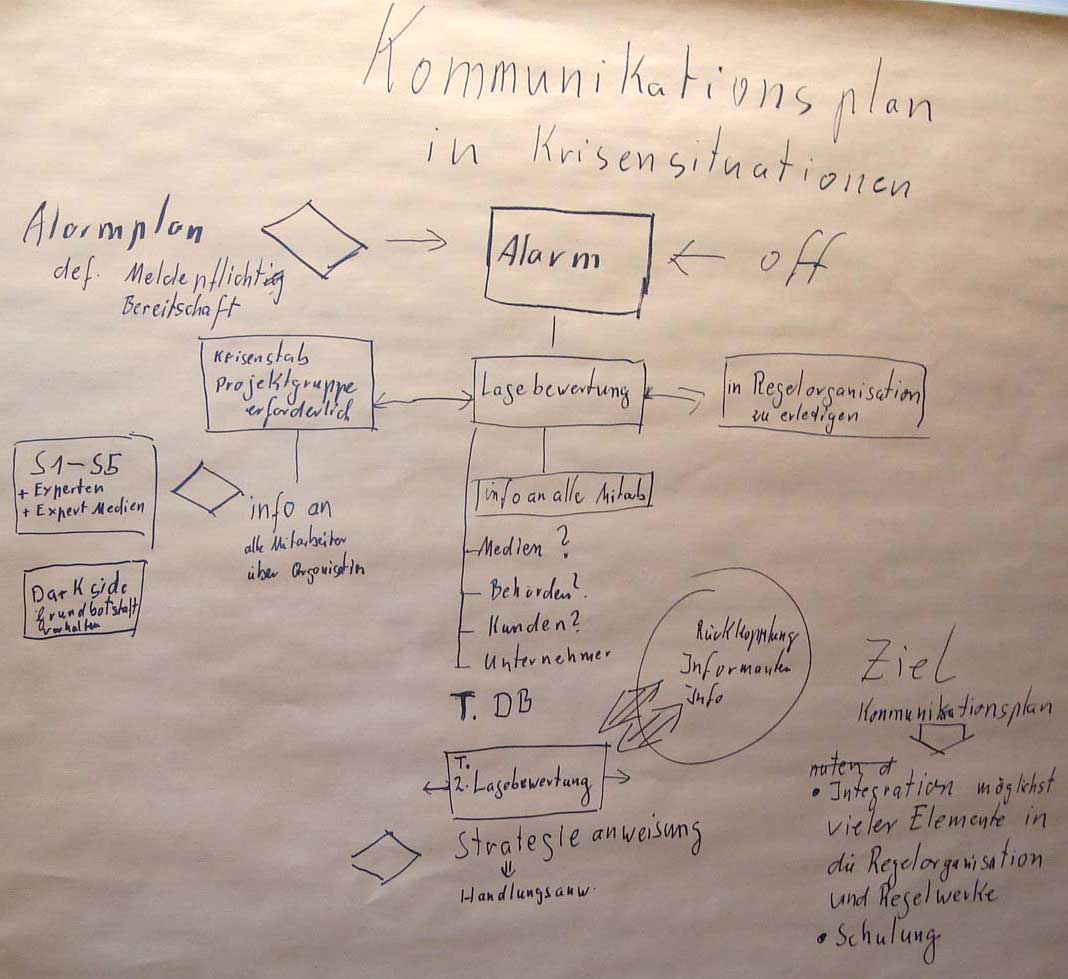 Kommunikationsplan
in Krisensituationen
Alarmplan
def. Meldepflichtig
Bereitschaft
Alarm
off
Krisenstab
Projektgruppe
erforderlich
Lagebewertung
in Regelorganisation
zu erledigen
S1-S5
+ Experten
+ Expert Medien
info an
alle Mitarbeiter
über Organisation
Dark side
Grundbotschaft
info an alle Mitab
Medien ?
Behörden?
Kunden?
Unternehmer
T. DB
Rückkopplung
Informanten
info
T.
2. Lagebewertung
Strategieanweisung
Handlungsanw.
Ziel
Kommunikationsplan
• Integration möglichst
vieler Elemente in
die Regelorganisation
und Regelwerke
• Schulung